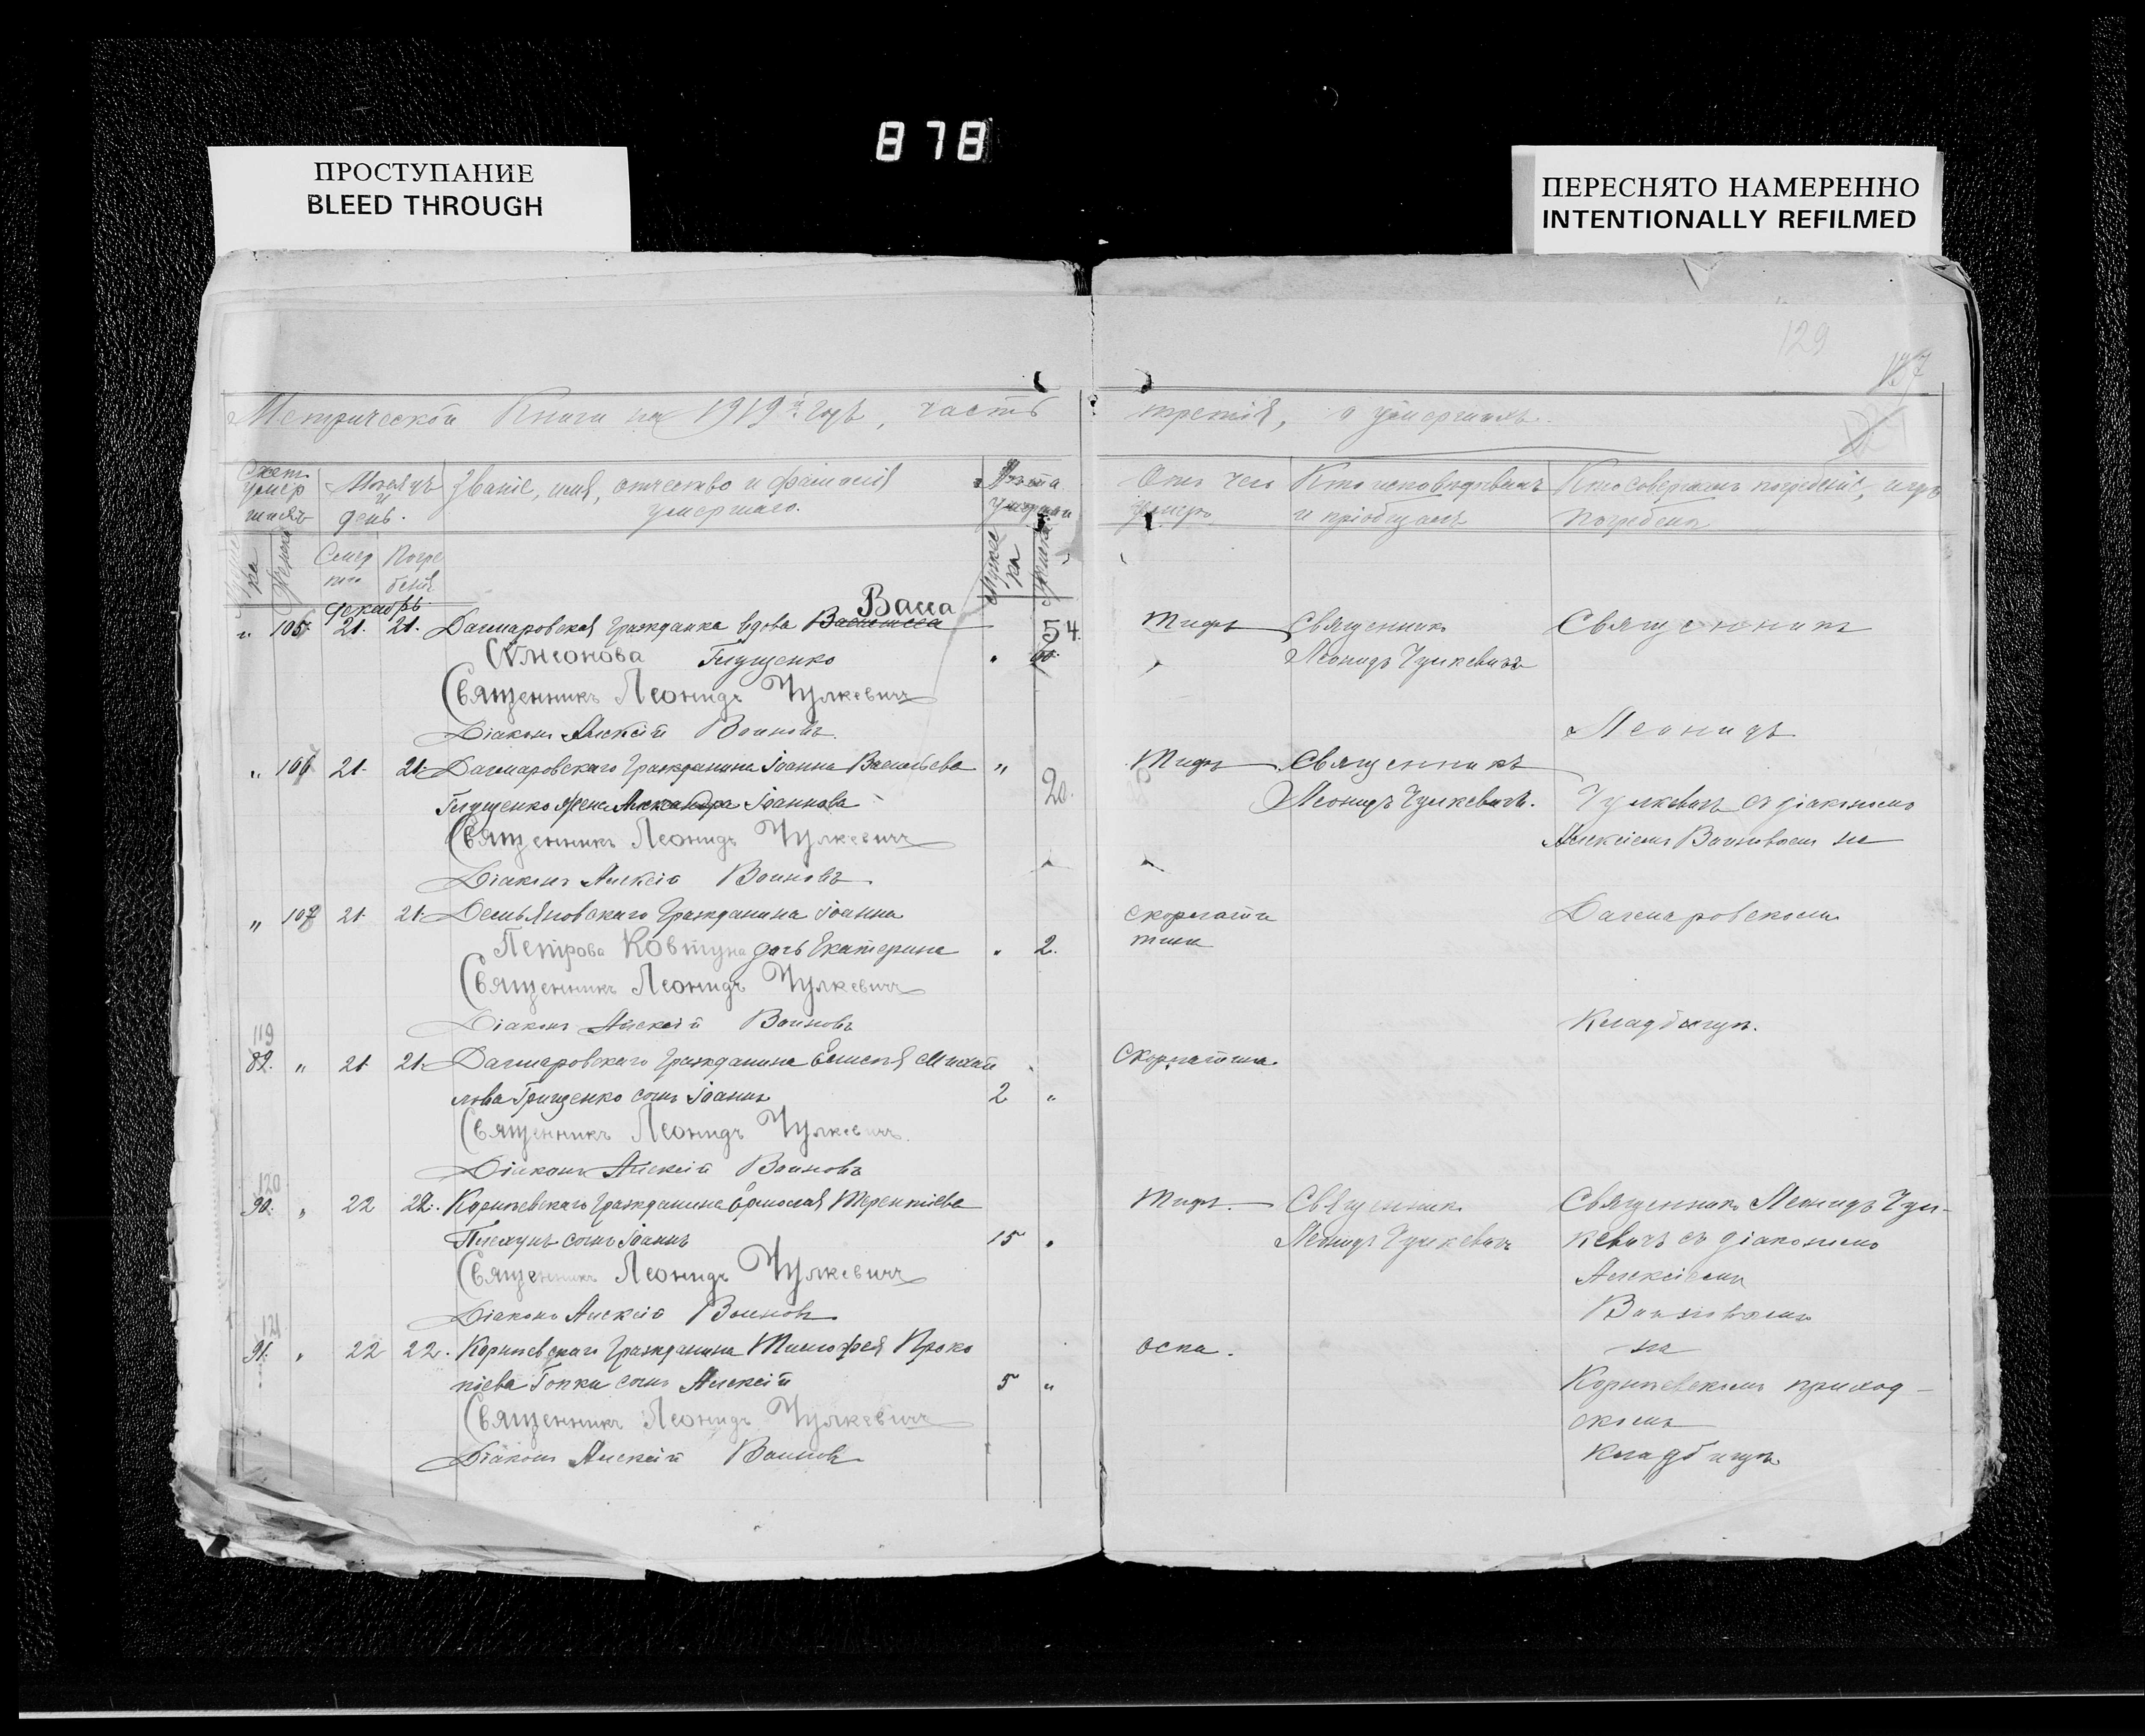 878
ПРОСТУПАНИЕ
BLEED THROUGH
ПЕРЕСНЯТО НАМЕРЕННО
INTENTIONALLY REFILMED
129
137
Метрической Книги на 1919й годъ, часть
третія, о умершихъ.
Счетъ умер шихъ
Мѣсяцъ и день.
Званіе, имя, отчество и фамилія умершаго.
Лѣта умершаго
Отъ чего умеръ
Кто исповѣдывалъ и пріобщалъ
Кто совершалъ погребеніе, и гдѣ погребенъ
Мужеска
Женска
Смерти
Погребенія
Декабрь
" 105 21. 21. Дагмаровская Гражданка вдова Васса
54.
Тифъ
Священникъ
Священникъ
Симеонова Глущенко
Леонидъ Чулкевичъ
Священникъ Леонидъ Чулкевичъ
Діаконъ Алексій Воиновъ.
Леонидъ
" 106 21. 21. Дагмаровскаго Гражданина Іоанна Васильева "
20.
Тифъ
Священникъ
Глущенко жена Александра Іоаннова
Леонидъ Чулкевичъ.
Чулкевичъ съ діакономъ
Священникъ Леонидъ Чулкевичъ
Алексіемъ Воиновымъ на
Діаконъ Алексій Воиновъ.
" 107 21. 21. Демьяновскаго Гражданина Іоанна
скорлатина
Дагмаровскомъ
Петрова Ковтуна дочь Екатерина " 2.
Священникъ Леонидъ Чулкевичъ
Діаконъ Алексій Воиновъ
Кладбищѣ.
119
89. " 21. 21. Дагмаровскаго Гражданина Михай
Скорлатина
лова Грищенко сынъ Іоаннъ 2 "
Священникъ Леонидъ Чулкевичъ.
Діаконъ Алексій Воиновъ
120
90. " 22 22. Гражданина Ермолая Терентіева
Тифъ.
Священникъ
Священникъ Леонидъ Чул-
сынъ Іоаннъ 15 "
Леонидъ Чулкевичъ
кевичъ съ діакономъ
Священникъ Леонидъ Чулкевичъ
Алексіемъ
Діаконъ Алексій Воиновъ
Воиновымъ
121
91. " 22 22. Гражданина Тимофея Проко
оспа.
на
піева Гопки сынъ Алексій 5 "
приход-
Священникъ Леонидъ Чулкевичъ
скомъ
Діаконъ Алексій Воиновъ
кладбищѣ.